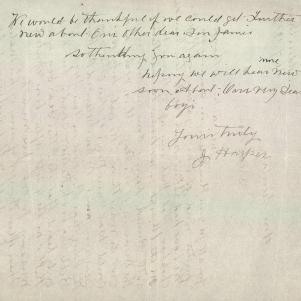 We would be thankful if we could get Further
new about Our Other dear Son James
So thanking You again
more
hoping we will hear new
soon about Our very Dear
boys
Yours truly
J. Harper